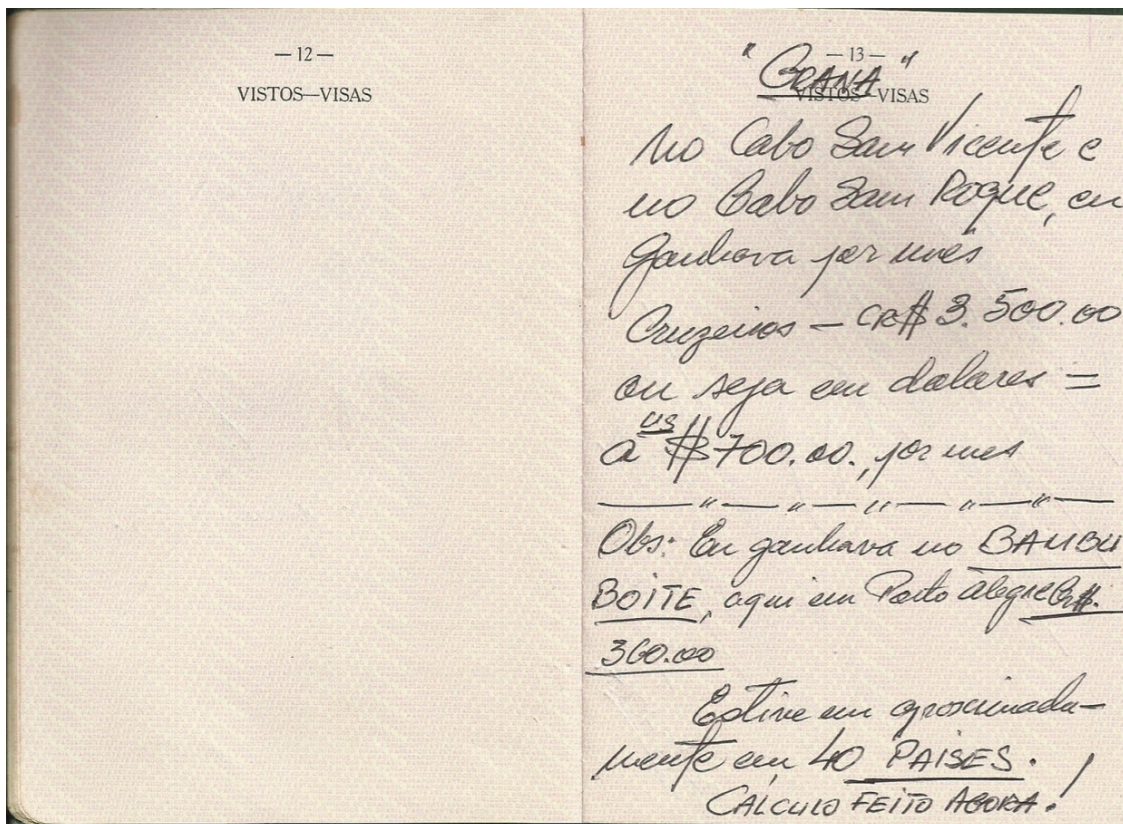 — 12 —
VISTOS—VISAS
— 13 —
VISTOS—VISAS
" GRANA "
No Cabo Sam Vicente e
no Cabo Sam Roque, eu
ganhava por mês
Cruzeiros — CR$ 3.500.00
ou seja em dolares =
a US $ 700.00., por mes
— " — " — " — " — " —
Obs: Eu ganhava no BAMBU
BOITE, aqui em Porto Alegre CR$.
360.00
Estive em aproximada-
mente em 40 PAISES.
CALCULO FEITO AGORA.!